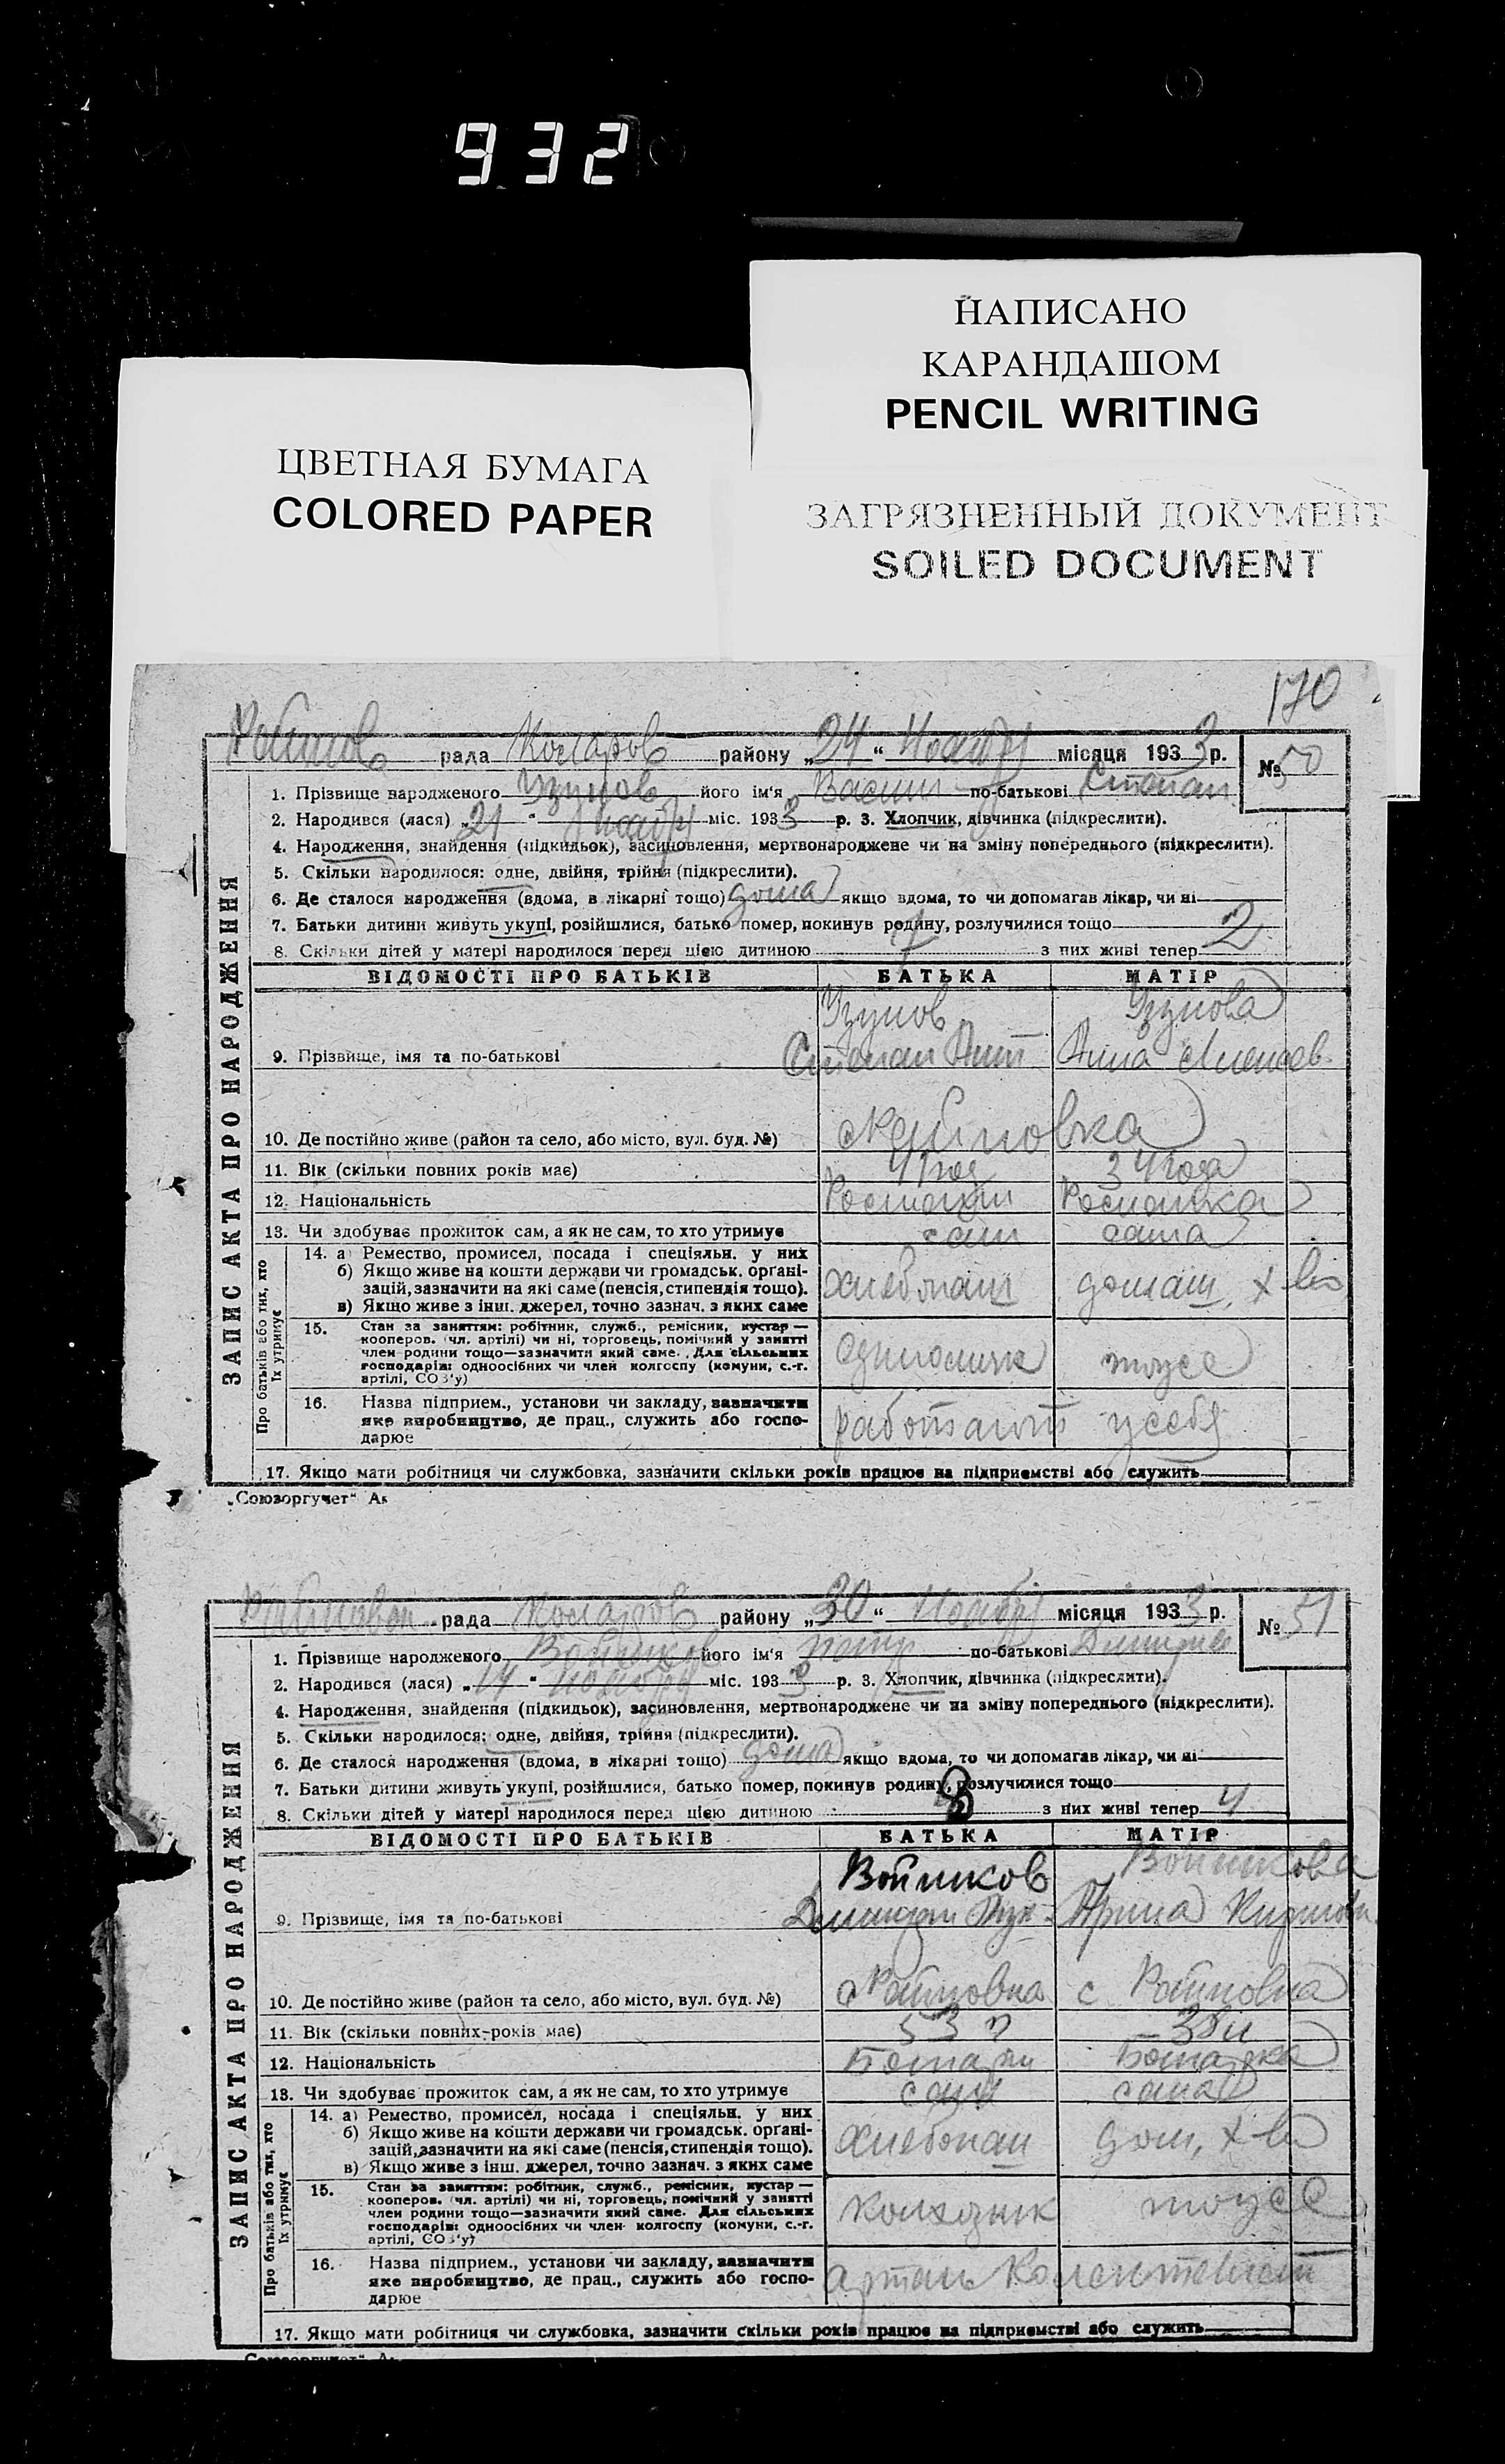 932
НАПИСАНО
КАРАНДАШОМ
PENCIL WRITING
ЦВЕТНАЯ БУМАГА
COLORED PAPER
ЗАГРЯЗНЕННЫЙ ДОКУМЕНТ
SOILED DOCUMENT
170
рада Коларов району „24“ Ноября місяця 1933 р.
№ 50
ЗАПИС АКТА ПРО НАРОДЖЕННЯ
1. Прізвище народженого Узунов його ім'я Васил по-батькові Степан
2. Народився (лася) „21“ Ноября міс. 1933 р. 3. Хлопчик, дівчинка (підкреслити).
4. Народження, знайдення (підкидьок), засиновлення, мертвонароджене чи на зміну попереднього (підкреслити).
5. Скільки народилося: одне, двійня, трійня (підкреслити).
6. Де сталося народження (вдома, в лікарні тощо) дома якщо вдома, то чи допомагав лікар, чи ні
7. Батьки дитини живуть укупі, розійшлися, батько помер, покинув родину, розлучилися тощо
8. Скільки дітей у матері народилося перед цією дитиною 7 з них живі тепер 2
ВІДОМОСТІ ПРО БАТЬКІВ БАТЬКА МАТІР
Узунов Узунова
9. Прізвище, імя та по-батькові Степан Анна
10. Де постійно живе (район та село, або місто, вул. буд. №)
11. Вік (скільки повних років має) 41 год 34 года
12. Національність
13. Чи здобуває прожиток сам, а як не сам, то хто утримує сам сама
Про батьків або тих, хто їх утримує
14. а) Ремество, промисел, посада і спеціяльн. у них
б) Якщо живе на кошти держави чи громадськ. органі-
зацій, зазначити на які саме (пенсія, стипендія тощо).
в) Якщо живе з інш. джерел, точно зазнач. з яких саме
хлебопаш домаш. х-во
15. Стан за заняттям: робітник, служб., ремісник, кустар—
кооперов. (чл. артілі) чи ні, торговець, помічний у занятті
член родини тощо—зазначити який саме. Для сільських
господарів: одноосібних чи член колгоспу (комуни, с.-г.
артілі, СОЗ'у)
единолич тоже
16. Назва підприєм., установи чи закладу, зазначити
яке виробництво, де прац., служить або госпо-
дарює
работают у себя
17. Якщо мати робітниця чи службовка, зазначити скільки років працює на підприємстві або служить
„Союзоргучет“
рада Коларов району „30“ Ноября місяця 1933 р.
№ 51
ЗАПИС АКТА ПРО НАРОДЖЕННЯ
1. Прізвище народженого Войников його ім'я Петр по-батькові
2. Народився (лася) „14“ Ноября міс. 1933 р. 3. Хлопчик, дівчинка (підкреслити).
4. Народження, знайдення (підкидьок), засиновлення, мертвонароджене чи на зміну попереднього (підкреслити).
5. Скільки народилося: одне, двійня, трійня (підкреслити).
6. Де сталося народження (вдома, в лікарні тощо) дома якщо вдома, то чи допомагав лікар, чи ні
7. Батьки дитини живуть укупі, розійшлися, батько помер, покинув родину, розлучилися тощо
8. Скільки дітей у матері народилося перед цією дитиною 8 з них живі тепер 4
ВІДОМОСТІ ПРО БАТЬКІВ БАТЬКА МАТІР
Войников Войникова
9. Прізвище, імя та по-батькові
10. Де постійно живе (район та село, або місто, вул. буд. №) с с
11. Вік (скільки повних років має) 53 38
12. Національність
13. Чи здобуває прожиток сам, а як не сам, то хто утримує сам сама
Про батьків або тих, хто їх утримує
14. а) Ремество, промисел, посада і спеціяльн. у них
б) Якщо живе на кошти держави чи громадськ. органі-
зацій, зазначити на які саме (пенсія, стипендія тощо).
в) Якщо живе з інш. джерел, точно зазнач. з яких саме
хлебопаш дом. х-во
15. Стан за заняттям: робітник, служб., ремісник, кустар—
кооперов. (чл. артілі) чи ні, торговець, помічний у занятті
член родини тощо—зазначити який саме. Для сільських
господарів: одноосібних чи член колгоспу (комуни, с.-г.
артілі, СОЗ'у)
колхозник тоже
16. Назва підприєм., установи чи закладу, зазначити
яке виробництво, де прац., служить або госпо-
дарює
артель
17. Якщо мати робітниця чи службовка, зазначити скільки років працює на підприємстві або служить